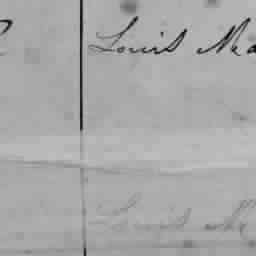 Louis Ma
Louis Ma